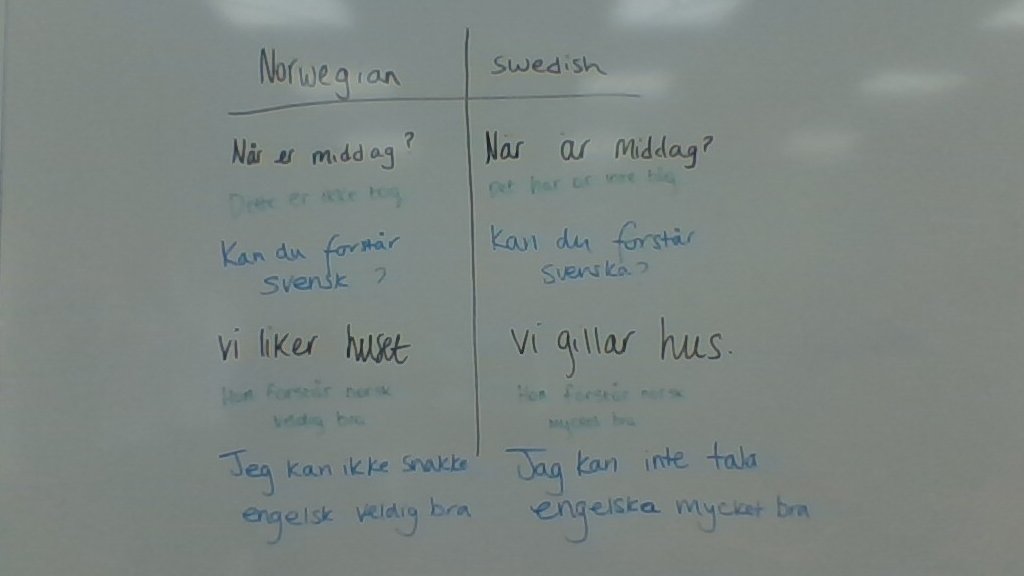 Norwegian
swedish
Når er middag?
När är middag?
er ikke
Kan du forstår
svensk ?
Kan du förstår
svenska?
vi liker huset
vi gillar hus.
Hon forstår norsk
veldig bra
Hon förstår norsk
mycket bra
Jeg kan ikke snakke
engelsk veldig bra
Jag kan inte tala
engelska mycket bra